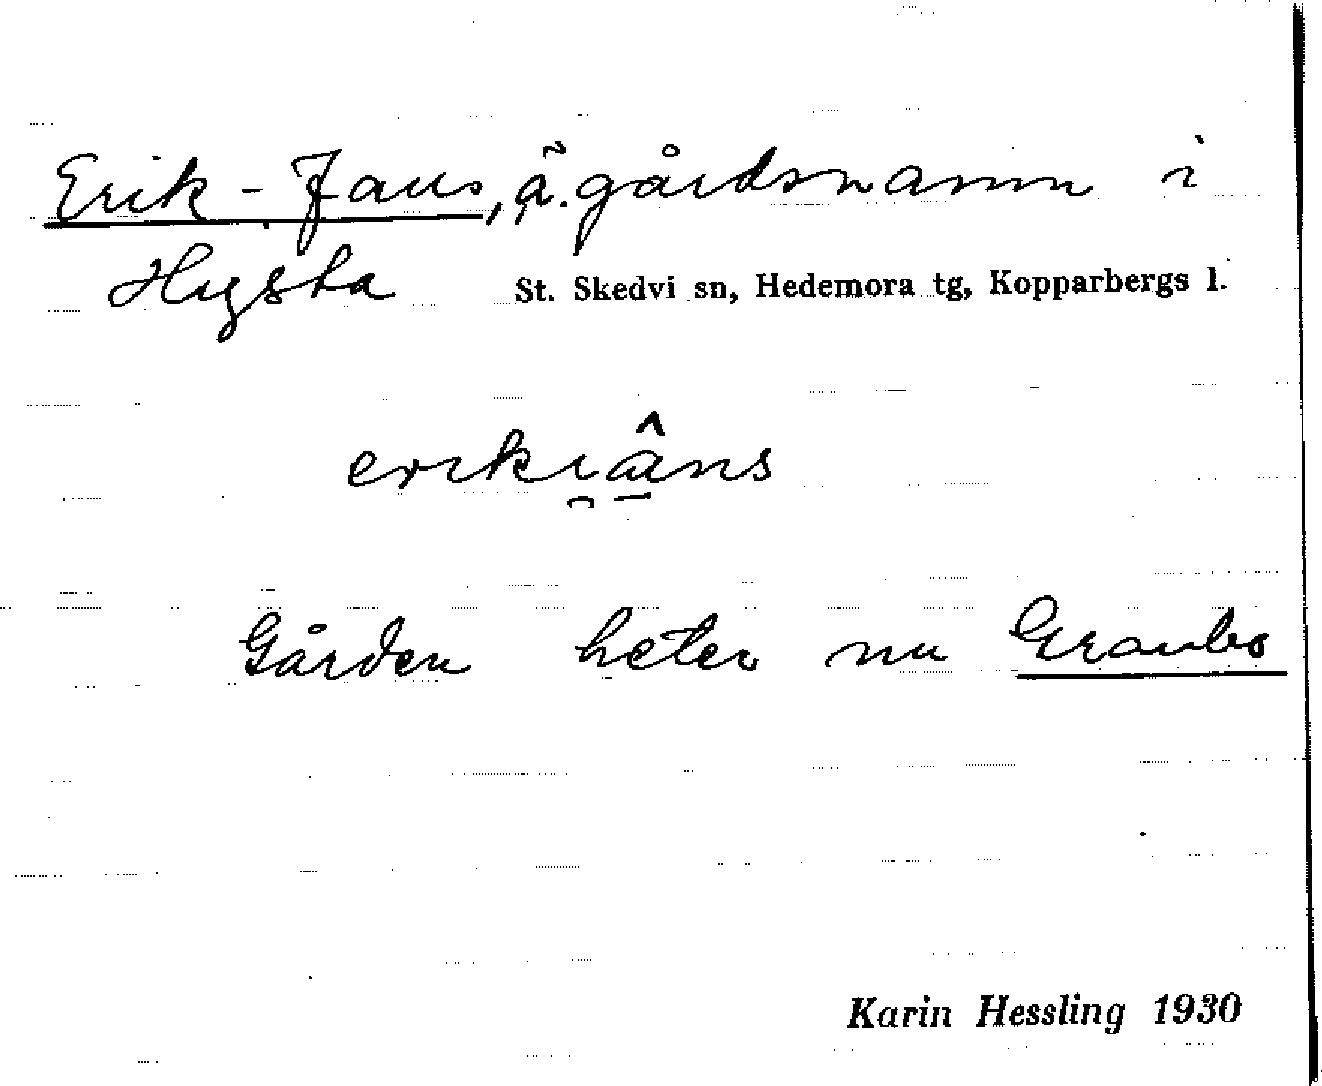 Erik-Jans, ä. gårdsnamn i
Hysta St. Skedvi sn, Hedemora tg, Kopparbergs l.
eriki̯âns
Gården heter nu Granbo
Karin Hessling 1930